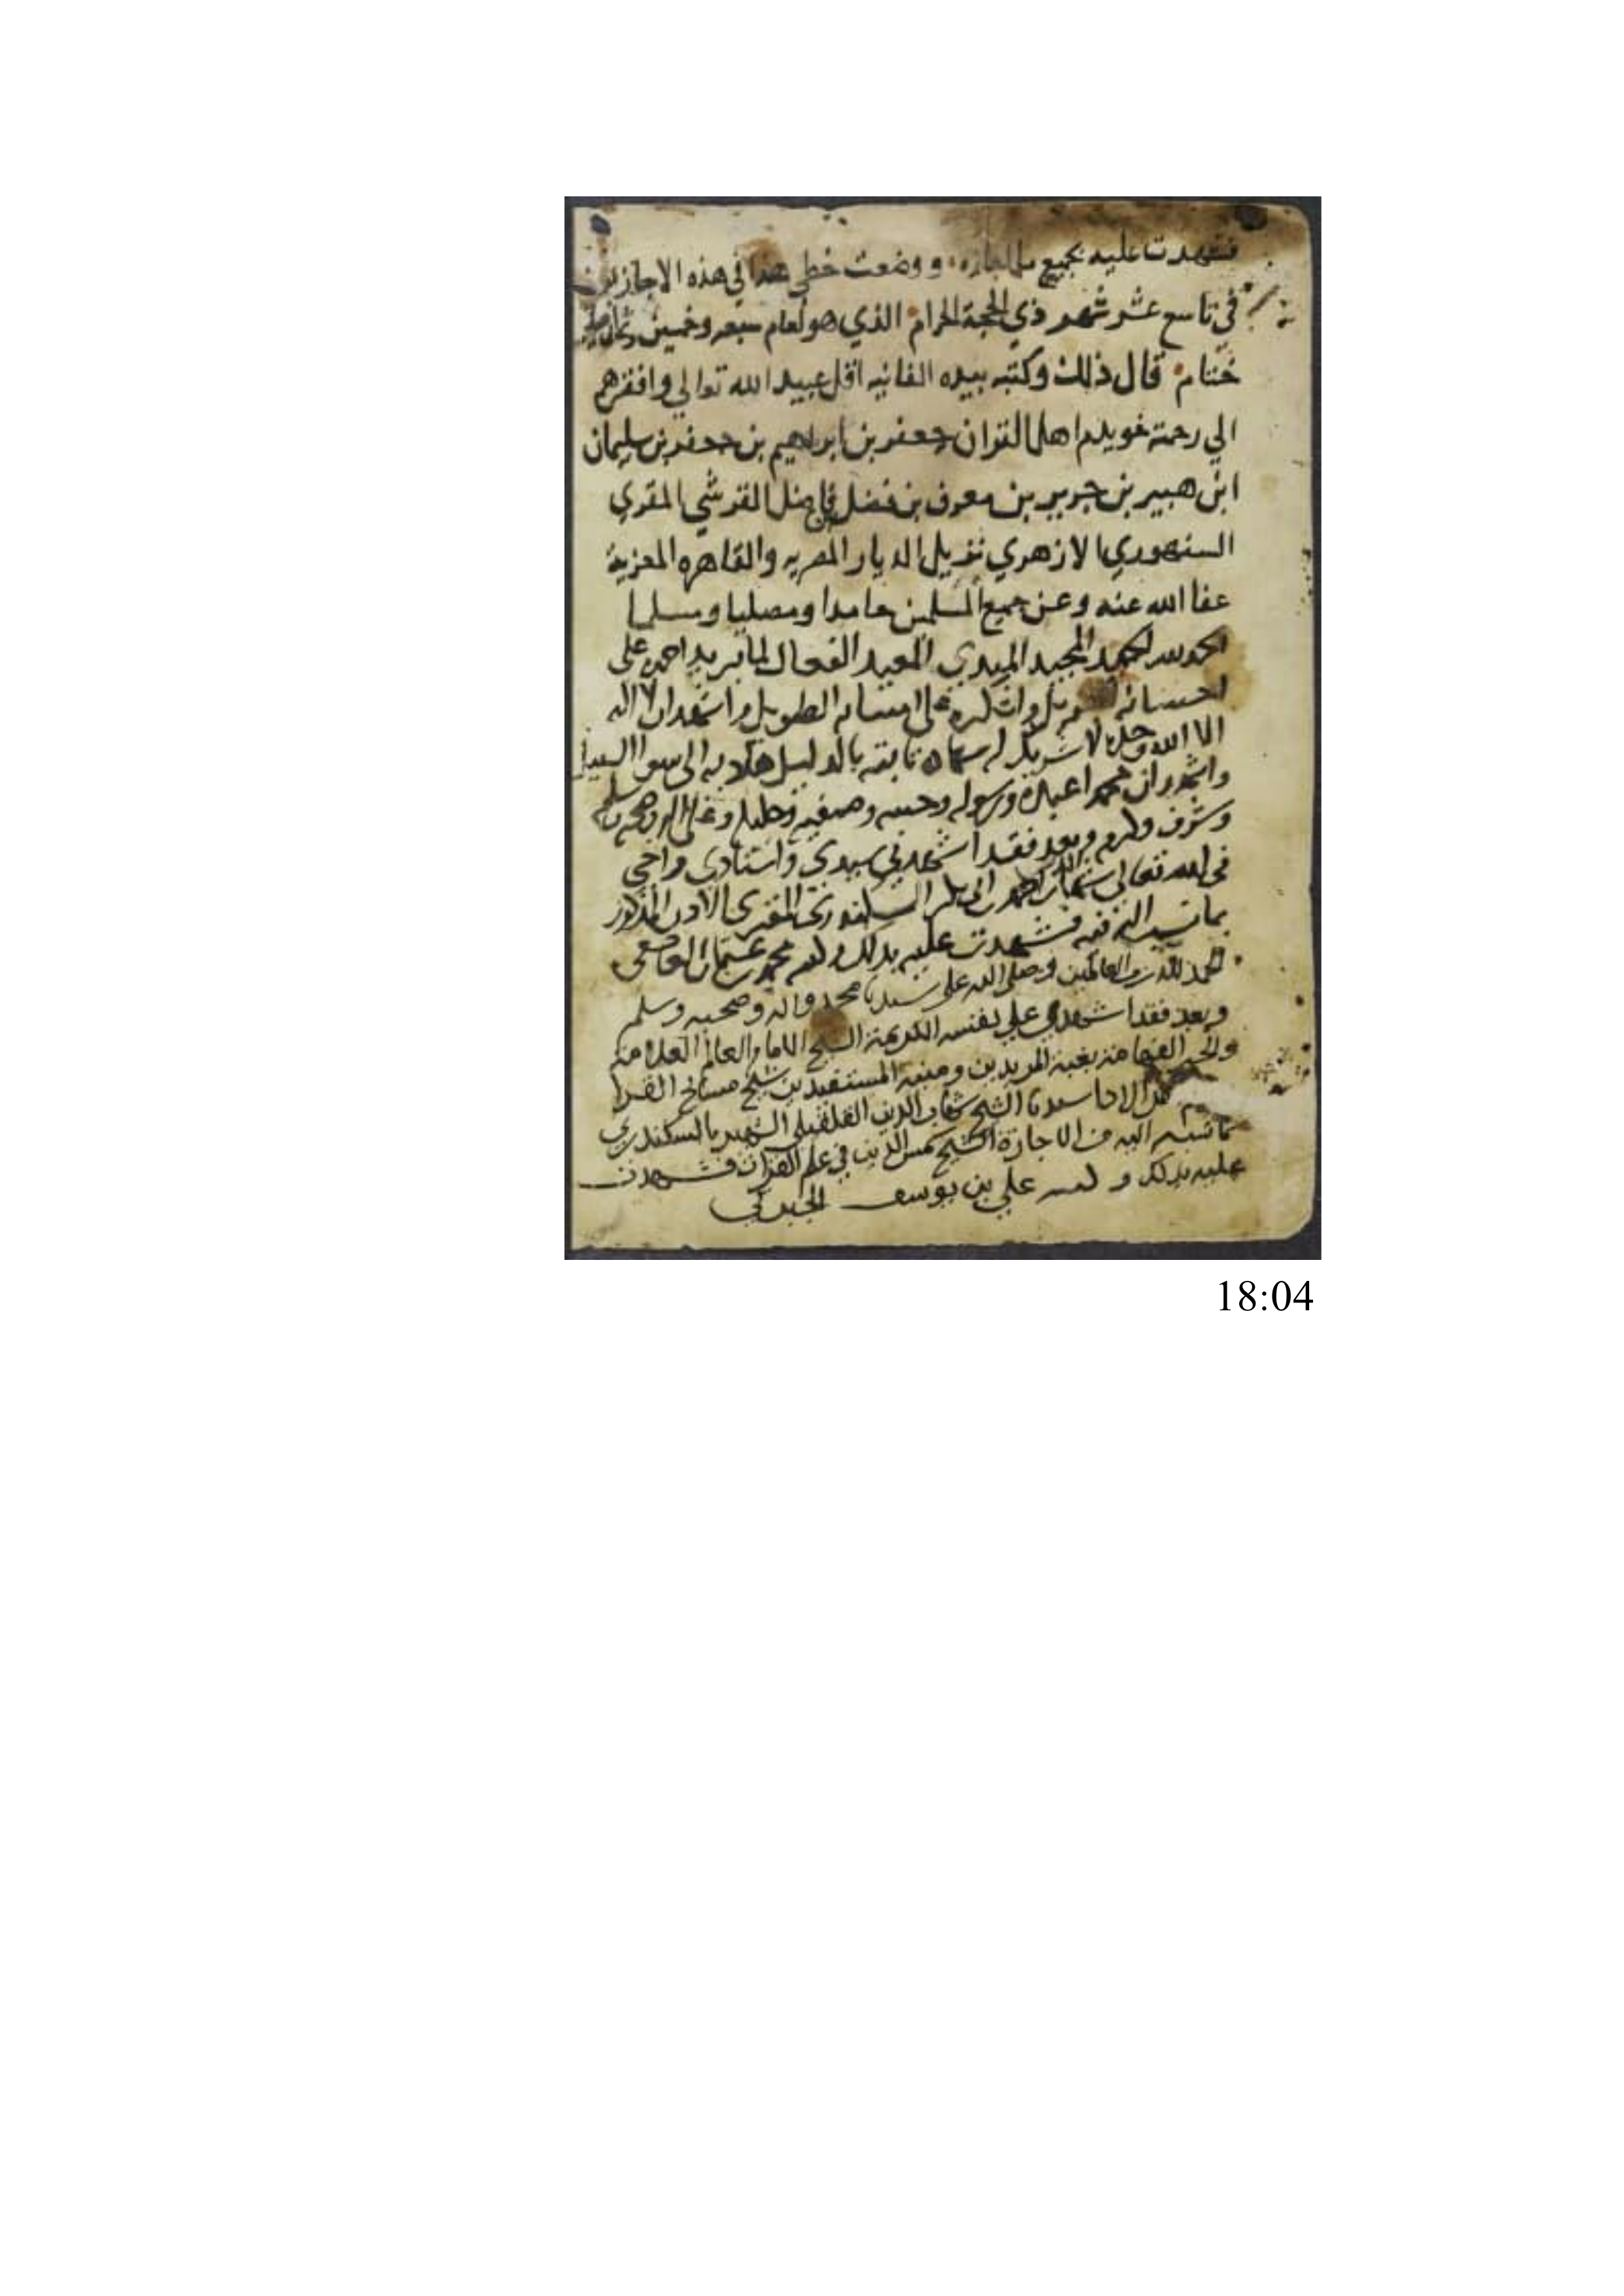 فشهدت عليه بجميع ووضعت خطي في هذه الاجازه
في تاسع عشر شهر ذي الحجة الحرام الذي هو لعام سبعه وخمسين
ختام قال ذلك وكتبه بيده الفانيه اقل عبيد الله تعالي وافقرهم
الي رحمته خويدم اهل القران جعفر بن ابراهيم بن جعفر بن سليمان
ابن هبير بن جرير بن معرف بن فضل فاضل القرشي المقري
السنهوري الازهري نزيل الديار المصريه والقاهره المعزية
عفا الله عنه وعن جميع المسلمين حامدا ومصليا ومسلما
الحمد لله الحميد المجيد المبدي المعيد الفعال لما يريد احمده على
احسانه واشكره على امتنانه الطويل واشهد ان لا اله
الا الله وحده لا شريك له بالدليل الى سوا السبيل
واشهد ان محمدا عبده ورسوله وحبيبه وصفيه وخليله وعلى اله وصحبه وسلم
وشرف وكرم وبعد فقد اشهدني سيدي واستادي واخي
في الله تعالى شهاب الدين احمد ابن ابي بكر السكندري المقرى الاذن المذكور
بما نسب اليه فيه فشهدت عليه بذلك وكتبه محمد بن عثمان
الحمد لله رب العالمين وصلى الله على سيدنا محمد واله وصحبه وسلم
وبعد فقد اشهدني على نفسه الكريمة الشيخ الامام العالم العلامة
والحبر الفهامة بغية المريدين ومنية المستفيدين شيخ مشايخ القرا
سيدنا الشيخ شهاب الدين القلقيلي الشهير بالسكندري
بما نسب اليه من الاجازة الشيخ شمس الدين في علم القران فشهدت
عليه بذلك وكتبه علي بن يوسف
18:04